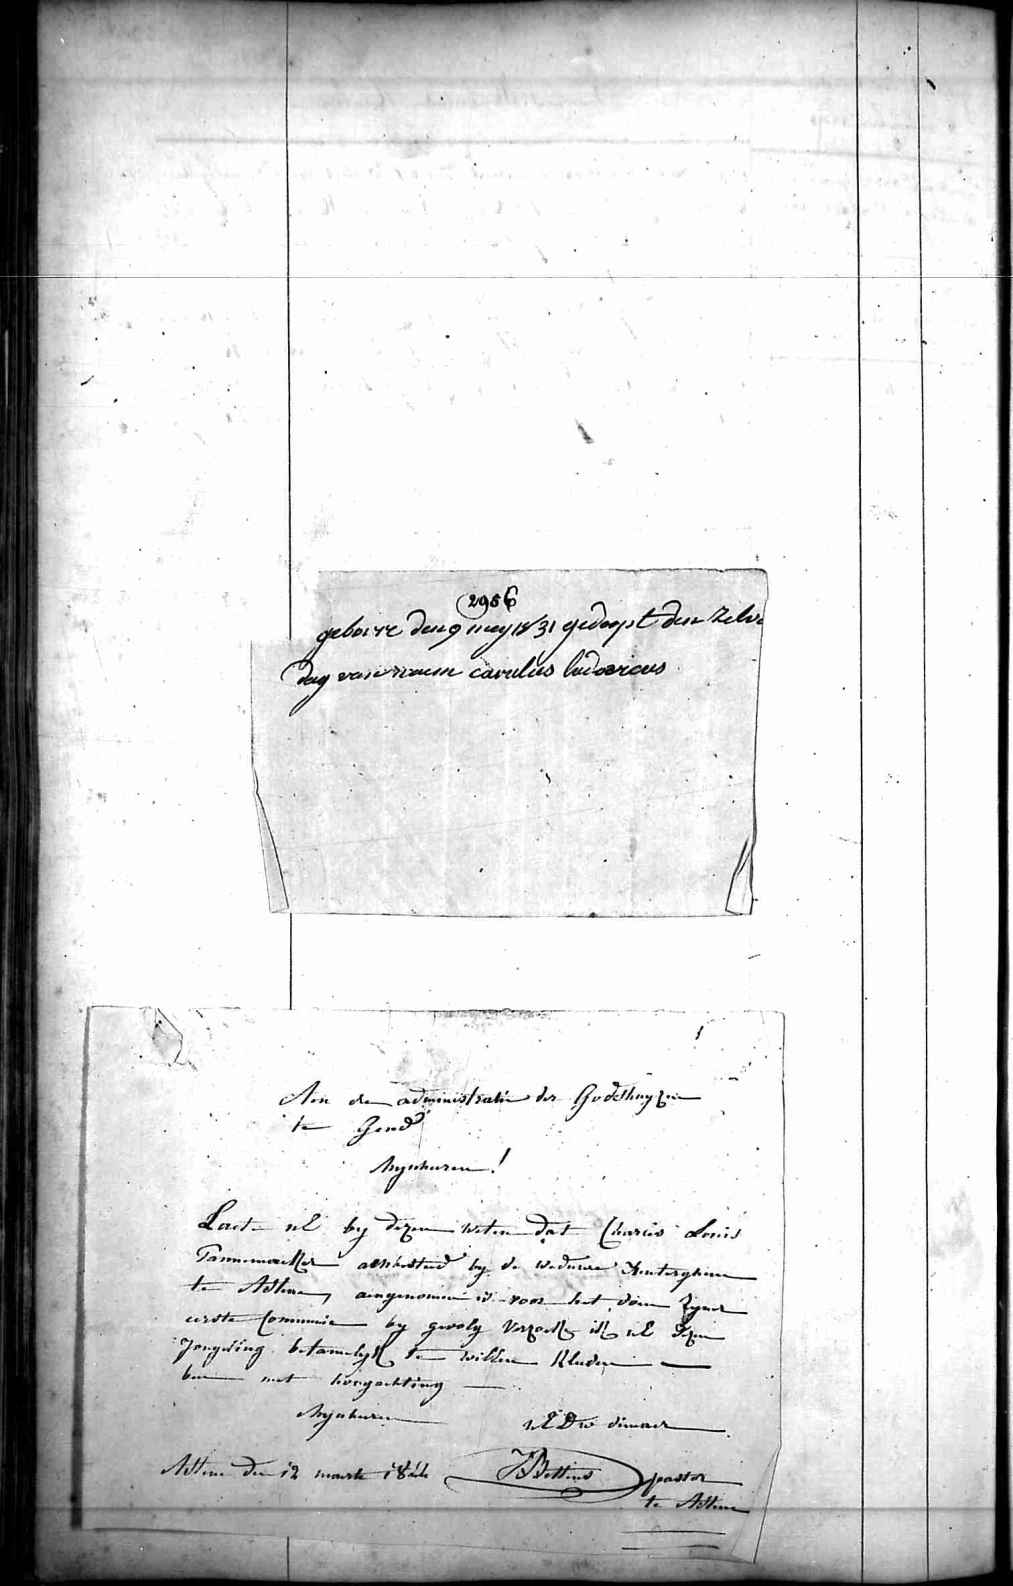 2956
geboire den 9 mey 1831 gedoopt den zelve
dag van naem carulus ludovicus
Aen de administratie der Godshuyzen
te Gend
Mynheeren!
Laet UE by dezen weten dat Charles Louis
Pannemaeker albesteed by de weduwe
te Astene, aengenomen is voor het doen zyner
eerste Communie by gevolg verzoeke ik UE dezen
Jongeling betamelyk te willen kleeden
ben met hoogachting
Mynheeren UE Dw dienaer
Astene den 12 maerte 1844 pastor
te Astene